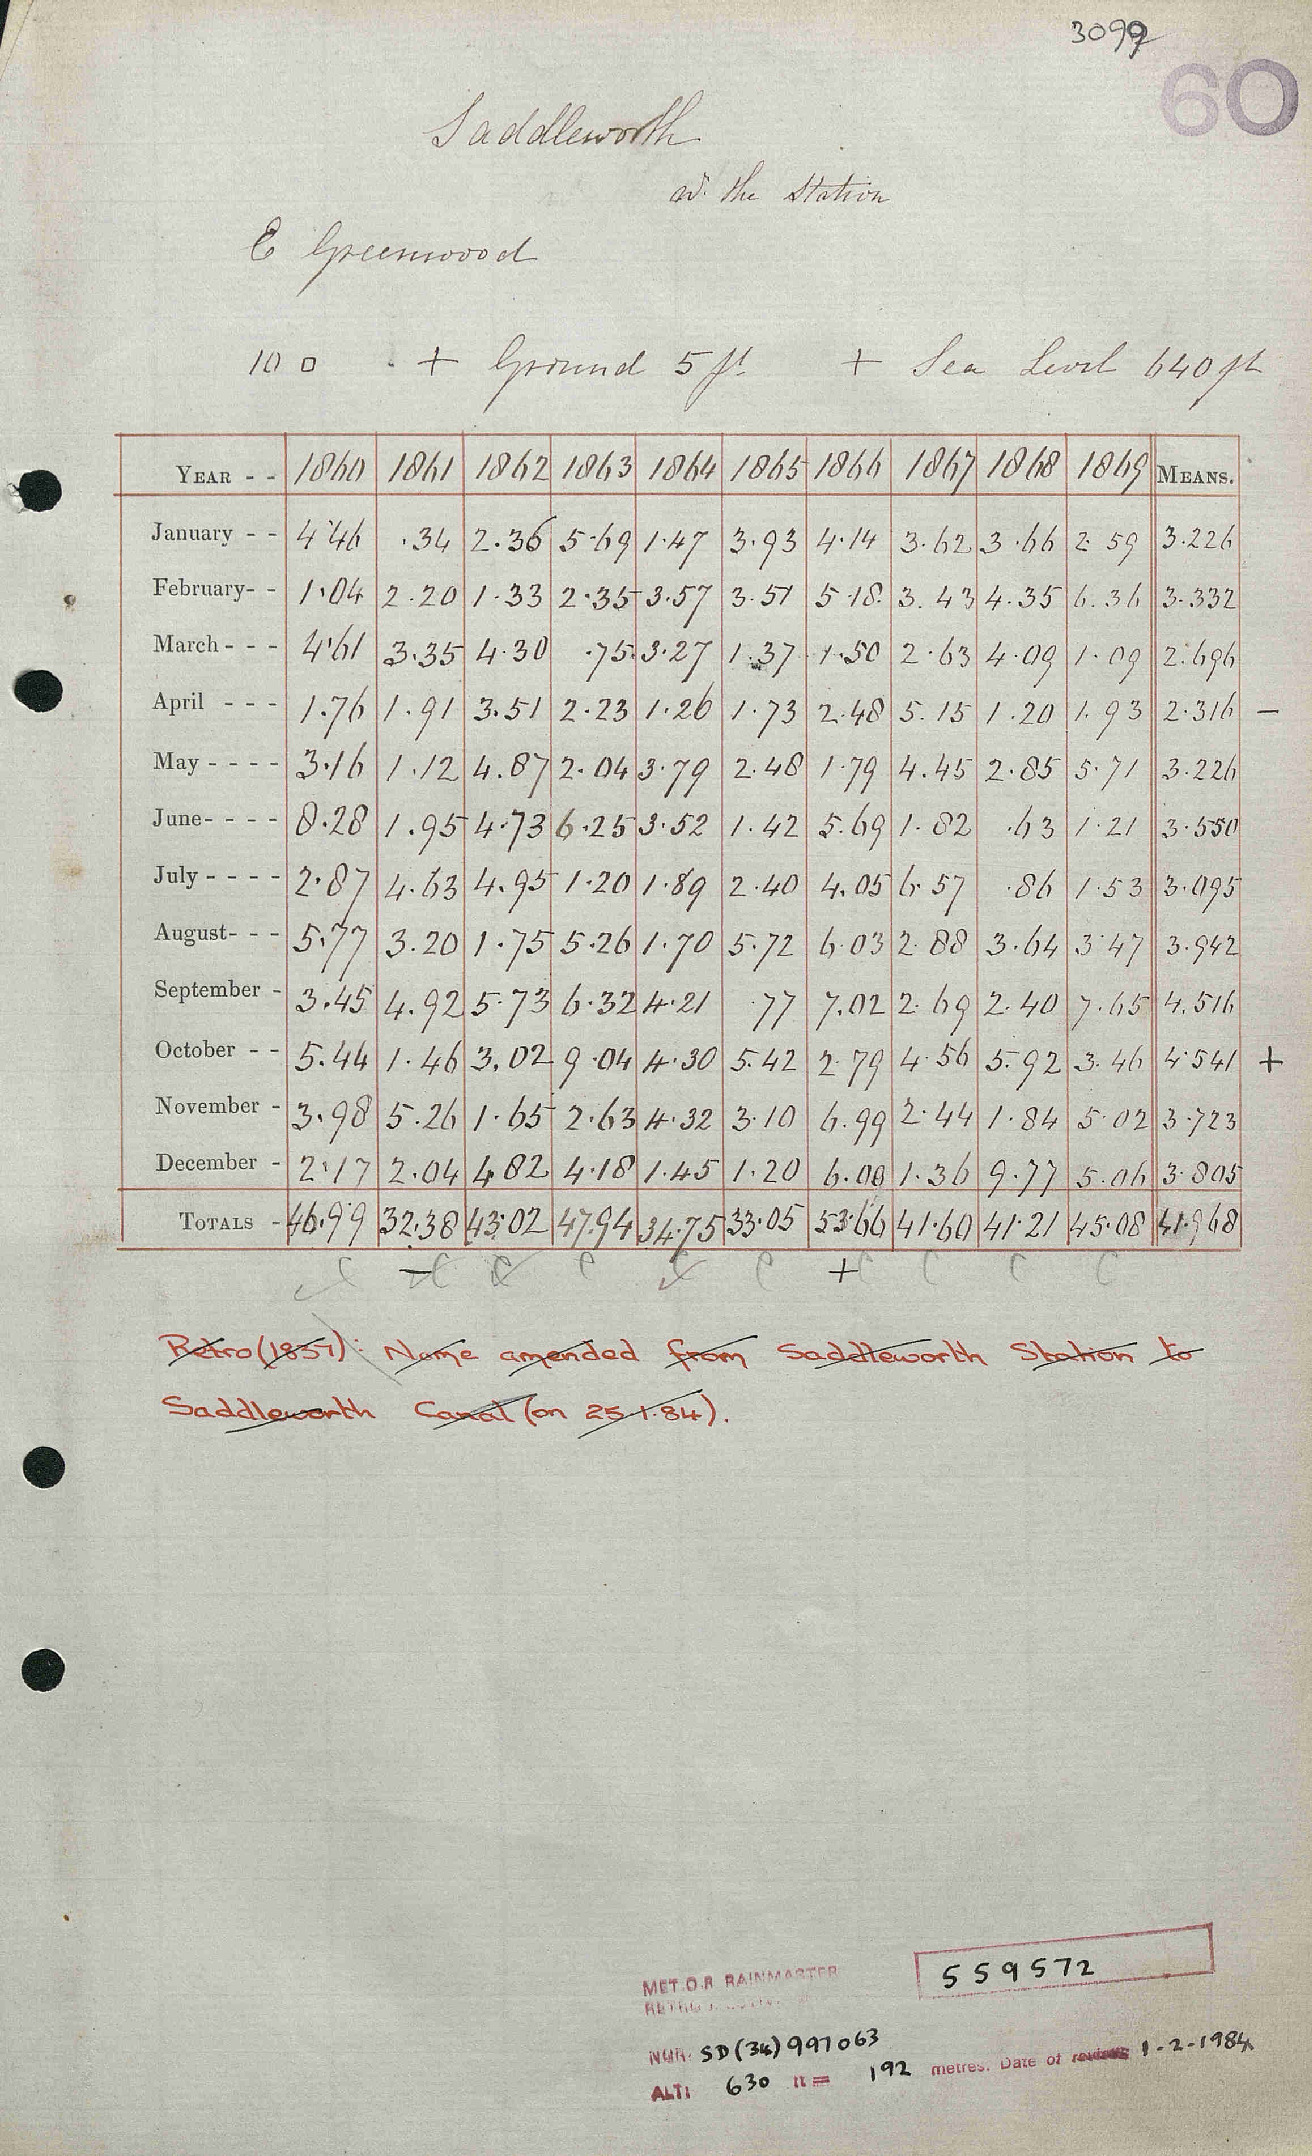 3099
60
Saddleworth
at the Station
E Greenwood
10 □ + Ground 5 ft + Sea Level 640 ft
YEAR - - 1860 1861 1862 1863 1864 1865 1866 1867 1868 1869 MEANS.
January - - 4.46 .34 2.36 5.69 1.47 3.93 4.14 3.62 3.66 2.59 3.226
February- - 1.04 2.20 1.33 2.35 3.57 3.51 5.18 3.43 4.35 6.36 3.332
March - - - 4.61 3.35 4.30 .75 3.27 1.37 1.50 2.63 4.09 1.09 2.696
April - - - 1.76 1.91 3.51 2.23 1.26 1.73 2.48 5.15 1.20 1.93 2.316 —
May - - - - 3.16 1.12 4.87 2.04 3.79 2.48 1.79 4.45 2.85 5.71 3.226
June- - - - 8.28 1.95 4.73 6.25 3.52 1.42 5.69 1.82 .63 1.21 3.550
July - - - - 2.87 4.63 4.95 1.20 1.89 2.40 4.05 6.57 .86 1.53 3.095
August- - - 5.77 3.20 1.75 5.26 1.70 5.72 6.03 2.88 3.64 3.47 3.942
September - 3.45 4.92 5.73 6.32 4.21 .77 7.02 2.69 2.40 7.65 4.516
October - - 5.44 1.46 3.02 9.04 4.30 5.42 2.79 4.56 5.92 3.46 4.541 +
November - 3.98 5.26 1.65 2.63 4.32 3.10 6.99 2.44 1.84 5.02 3.723
December - 2.17 2.04 4.82 4.18 1.45 1.20 6.00 1.36 9.77 5.06 3.805
TOTALS - 46.99 32.38 43.02 47.94 34.75 33.05 53.66 41.60 41.21 45.08 41.968
C — C C C C C + C C C C
Retro (1857): Name amended from Saddleworth Station to
Saddleworth Canal (on 25.1.84).
MET.O.8 RAINMASTER
559572
NGR: SD(34) 997063
ALT: 630 ft = 192 metres. Date of 1-2-1984